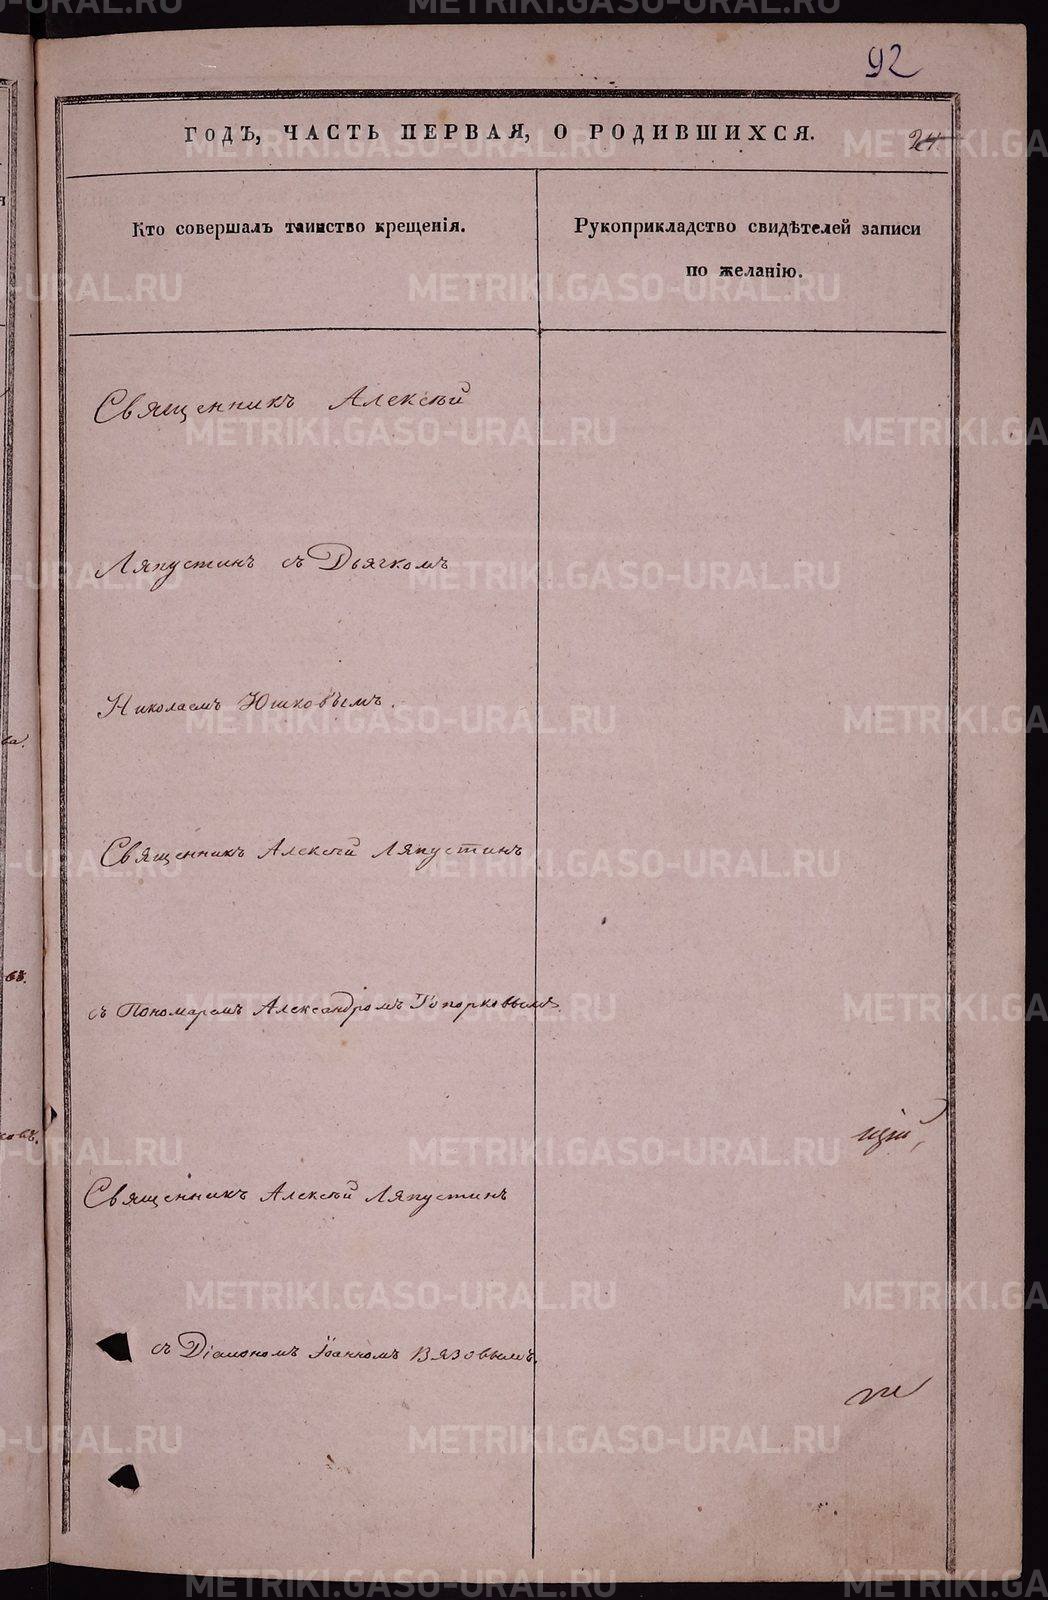 92
ГОДЪ, ЧАСТЬ ПЕРВАЯ, О РОДИВШИХСЯ.
24
Кто совершалъ таинство крещенія.
Рукоприкладство свидѣтелей записи
по желанію.
Священникъ Алексѣй
Ляпустинъ съ Дьячкомъ
Николаемъ Юшковымъ.
Священникъ Алексѣй Ляпустинъ
съ Пономаремъ Александромъ Топорковымъ.
Священникъ Алексѣй Ляпустинъ
съ Діакономъ Іоанномъ Вязовымъ.
METRIKI.GASO-URAL.RU